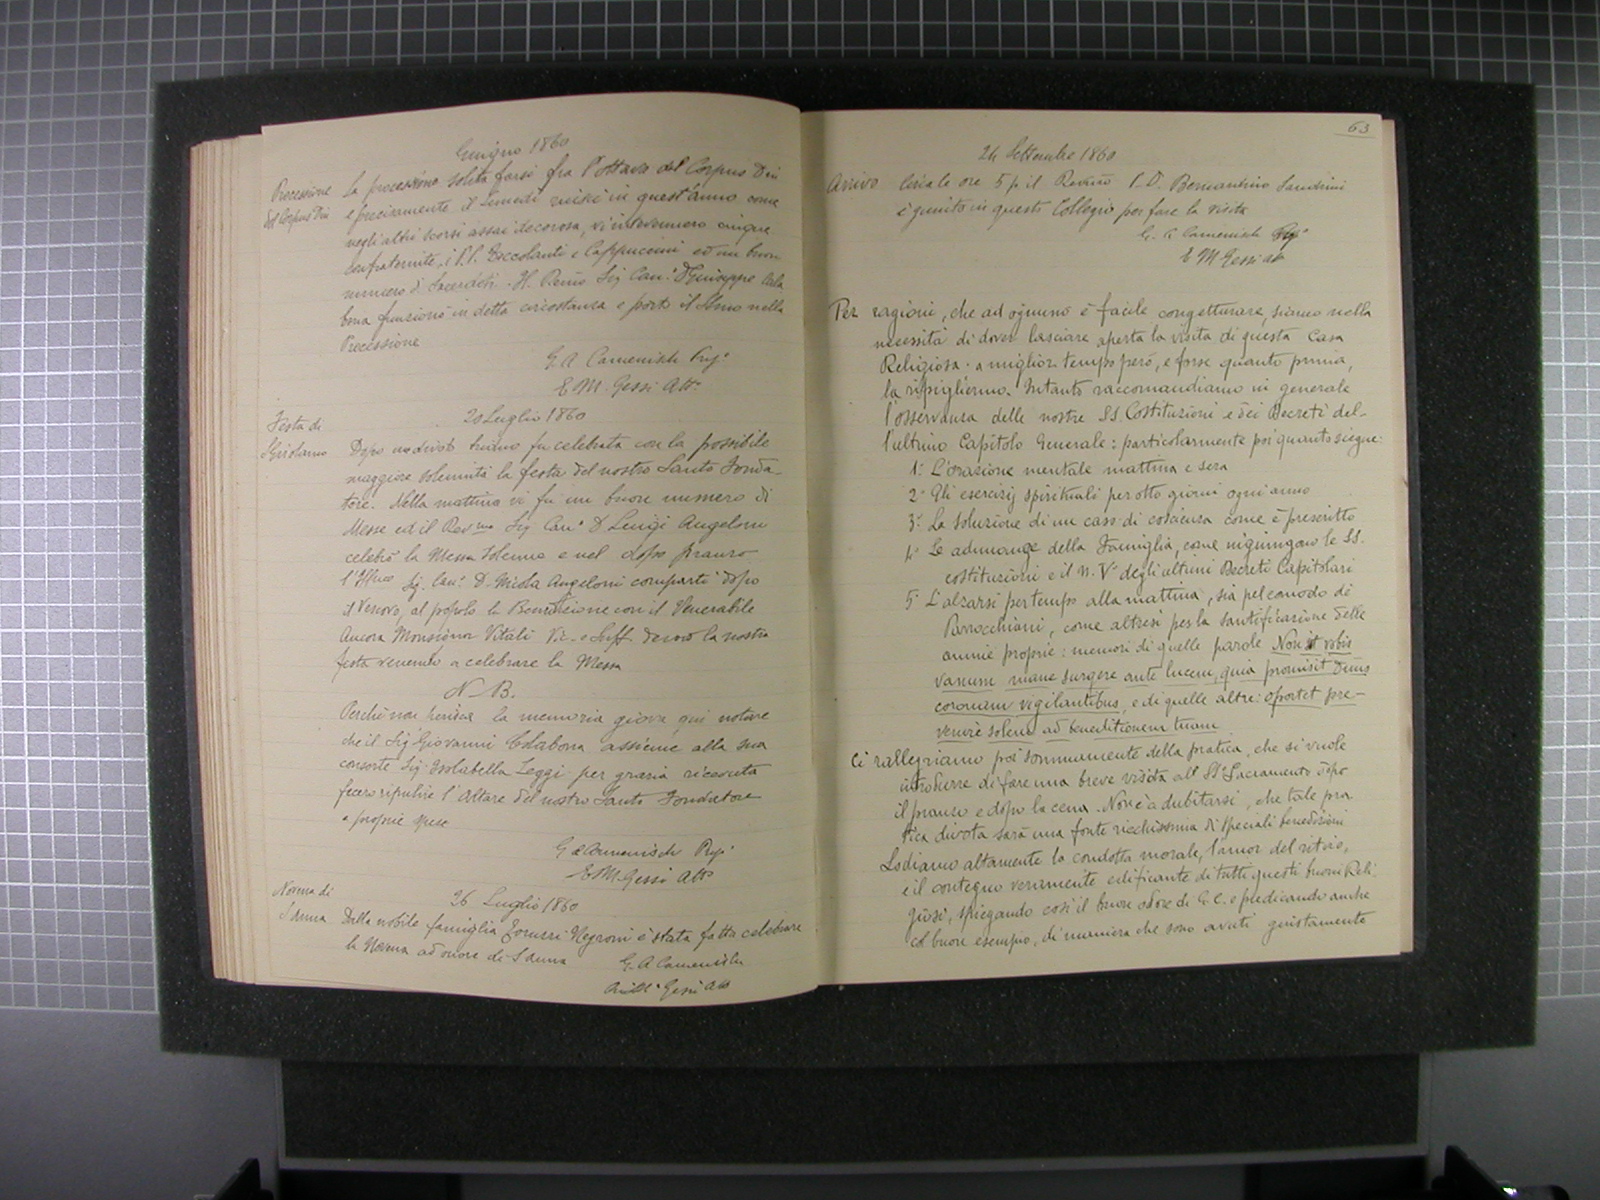 Giugno 1860
Processione
del Corpus Dni
La processione solita farsi fra l'ottava del Corpus Dni
e precisamente il Lunedì riuscì in quest'anno come
negli altri scorsi assai decorosa, vi intervennero cinque
Confraternite, i P.P. Zoccolanti e Cappuccini ed un buon
numero di Sacerdoti. Il Sig Can.° D Giuseppe Cola
bona funzionò in detta circostanza e portò il SSmo nella
Processione
G. A Camenisch Prep°
E M. Gessi Att°
20 Luglio 1860
Festa di
S Girolamo
Dopo un divoto triduo fu celebrata con la possibile
maggiore solennità la festa del nostro Santo Fonda
tore. Nella mattina vi fu un buon numero di
Messe ed il Revmo Sig Can° D Luigi Angeloni
celebrò la Messa solenne e nel dopo pranzo
l'Illmo Sig. Can° D. Nicola Angeloni compartì dopo
il Vespro, al popolo la Benedizione con il Venerabile
Ancora Monsignor Vitali Vic. e Suff decorò la nostra
festa venendo a celebrare la Messa
N. B.
Perchè non perisca la memoria giova qui notare
che il Sig Giovanni Colabona assieme alla sua
consorte Sig. Isolabella Leggi per grazia ricevuta
fecero ripulire l'Altare del nostro Santo Fondatore
a proprie spese
G A Camenisch Prep°
E M. Gessi Att°
26 Luglio 1860
Novena di
S Anna
Dalla nobile famiglia Negroni è stata fatta celebrare
la Novena ad onore di S Anna
G. A Camenisch
Gessi Att°
63
24 Settembre 1860
Arrivo
ore 5 p. il Revmo P. D. Bernardino Sandrini
è giunto in questo Collegio per fare la visita
G. A Camenisch Prep°
E M Gessi att
Per ragioni, che ad ognuno è facile congetturare, siamo nella
necessità di dover lasciare aperta la visita di questa Casa
Religiosa. a miglior tempo però, e forse quanto prima,
la ripiglieremo. Intanto raccomandiamo in generale
l'osservanza delle nostre SS. Costituzioni e dei Decreti del-
l'ultimo Capitolo Generale: particolarmente poi quanto siegue:
1° L'orazione mentale mattina e sera
2° Gli esercizj spirituali per otto giorni ogni anno
3° La soluzione di un caso di coscienza come è prescritto
4° Le adunanze della Famiglia, come ingiungono le SS.
costituzioni e il n. V° degli ultimi Decreti Capitolari
5° L'alzarsi per tempo alla mattina, sia pel comodo dei
Parrocchiani, come altresì per la santificazione delle
anime proprie: memori di quelle parole Non sit vobis
vanum mane surgere ante lucem, quia promisit Dnus
coronam vigilantibus, e di quelle altre: oportet pre-
venire solem ad benedictionem tuam
Ci rallegriamo poi sommamente della pratica, che si vuole
introdurre di fare una breve visita al SS° Sacramento dopo
il pranzo e dopo la cena. Non è a dubitarsi, che tale pra
tica divota sarà una fonte ricchissima di speciali benedizioni
Lodiamo altamente la condotta morale, l'amor del ritiro,
e il contegno veramente edificante di tutti questi buoni Reli
giosi, spiegando così il buon odore di G. C. e predicando anche
col buon esempio, di maniera che sono avuti giustamente